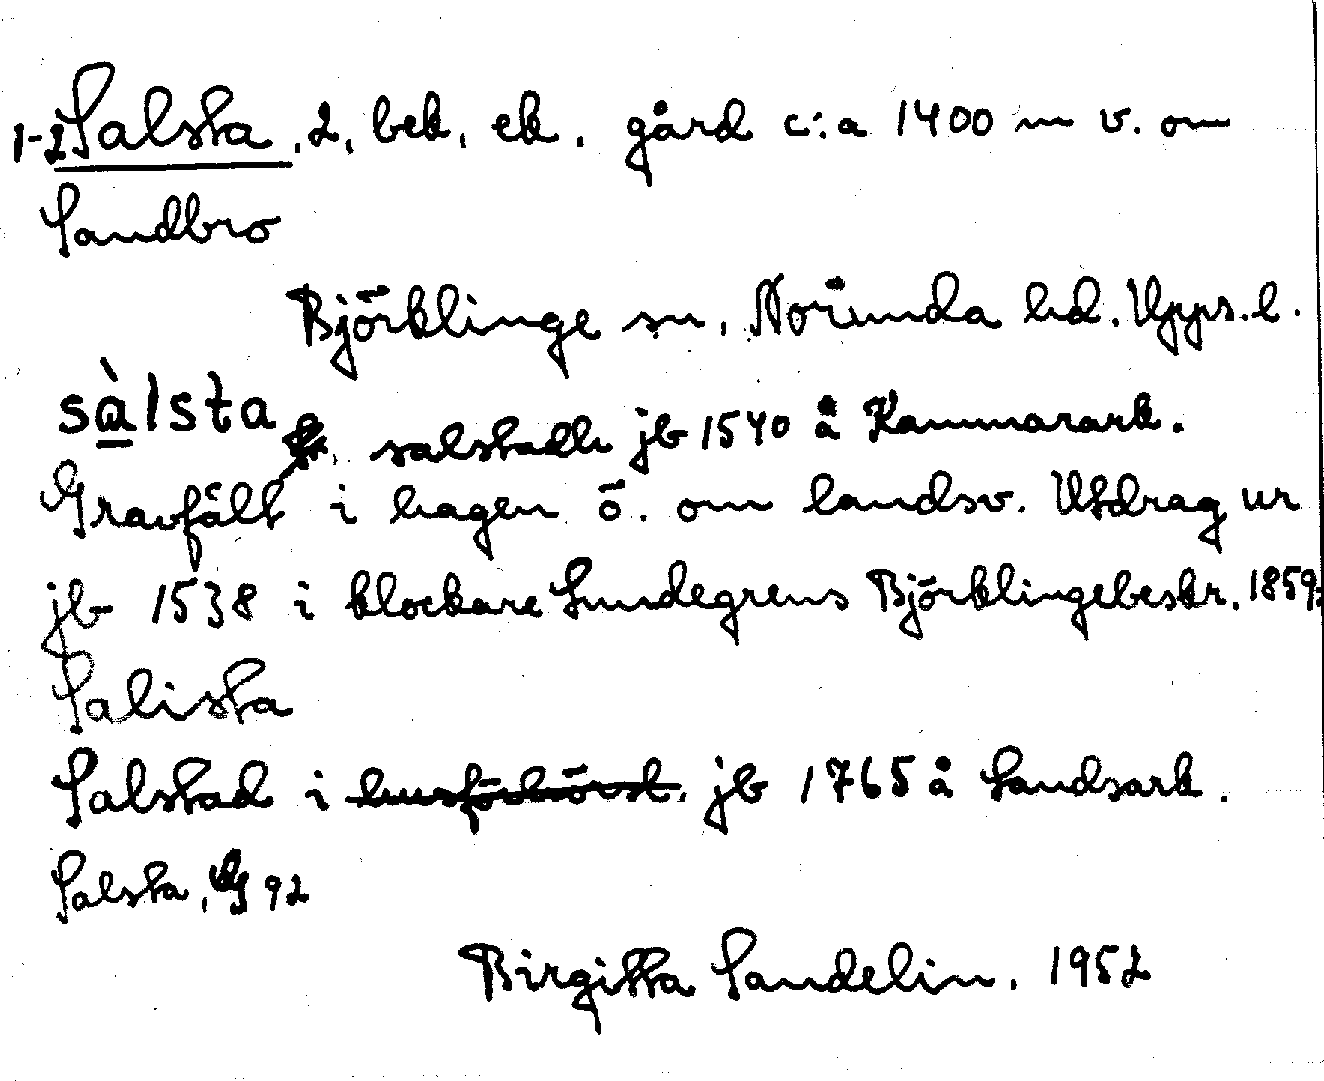 1-2 Salsta, 2, beb. eb. gård c:a 1400 m v. om
Sandbro
Björklinge sn, Norunda hd. Upps.l.
sàlsta salstadh jb 1540 å Kammarark.
Gravfält i hagen ö. om landsv. Utdrag ur
jb 1538 i klockare Lundegrens Björklingebeskr. 1859:
Salista
Salstad i husförhörsl. jb 1765 å Landsark.
Salsta, 92
Birgitta Sandelin. 1952